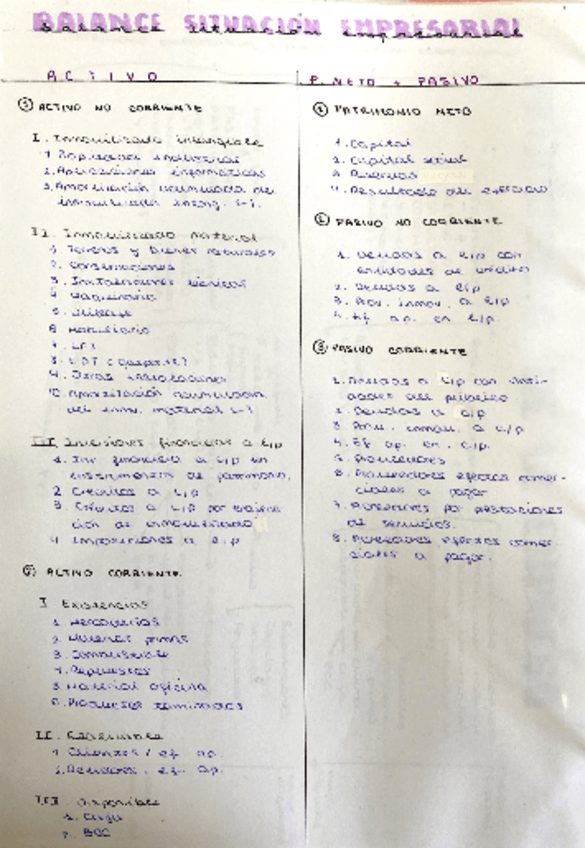 BALANCE SITUACIÓN EMPRESARIAL
Balance situación empresarial
ACTIVO
P. NETO + PASIVO
ACTIVO NO CORRIENTE
I. Inmovilizado intangible
1. Propiedad industrial
2. Aplicaciones informáticas
3. Amortización acumulada del
inmovilizado intang. (-).
II. Inmovilizado material
1. Terrenos y bienes naturales
2. Construcciones
3. Instalaciones técnicas
4. Maquinaria
5. Utillaje
6. Mobiliario
7. EPI
9. Otras instalaciones
10. Amortización acumulada
del inm. material (-)
III Inversiones financieras a L/p
1. Inv financiera a L/p en
instrumentos de patrimonio.
2 Créditos a L/p
3. Créditos a L/p por enajena
ción de inmovilizado
4 Imposiciones a L/p
ACTIVO CORRIENTE
I Existencias
1 Mercaderías
2. Materias primas
3. Combustible
4. Repuestos
5 Material oficina
6. Productos terminados
II. Realizable
1. Clientes / ef. ap.
2. Deudores. ef. ap.
III. Disponible
1. Caja
2. BCC
PATRIMONIO NETO
1. Capital
2. Capital social
3. Reservas
4. Resultado del ejercicio
PASIVO NO CORRIENTE
1. Deudas a L/p con
entidades de crédito
2. Deudas a L/p
3. Prov. inmov. a L/p
4. Ef. ap. en L/p.
PASIVO CORRIENTE
1. Deudas a C/p con enti-
dades del
2. Deudas a c/p
3 inmov. a c/p
4. Ef ap. en. c/p.
5. Proveedores
6. Proveedores efectos comer-
ciales a pagar
7. Acreedores por prestaciones
de servicios.
8. Acreedores efectos comer-
ciales a pagar.